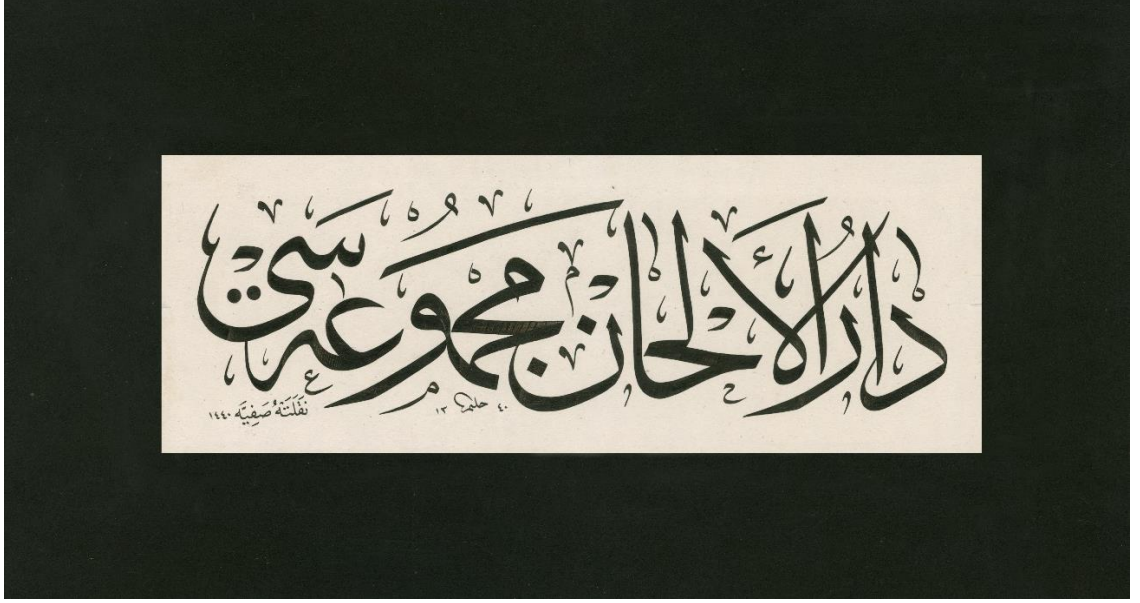 دَارُ الْأَلْحَانْ مَجْمُوعَه سِی
حلیم ١٣٤٠
نَقَلَتْهُ صَفِيَّه ١٤٤٠